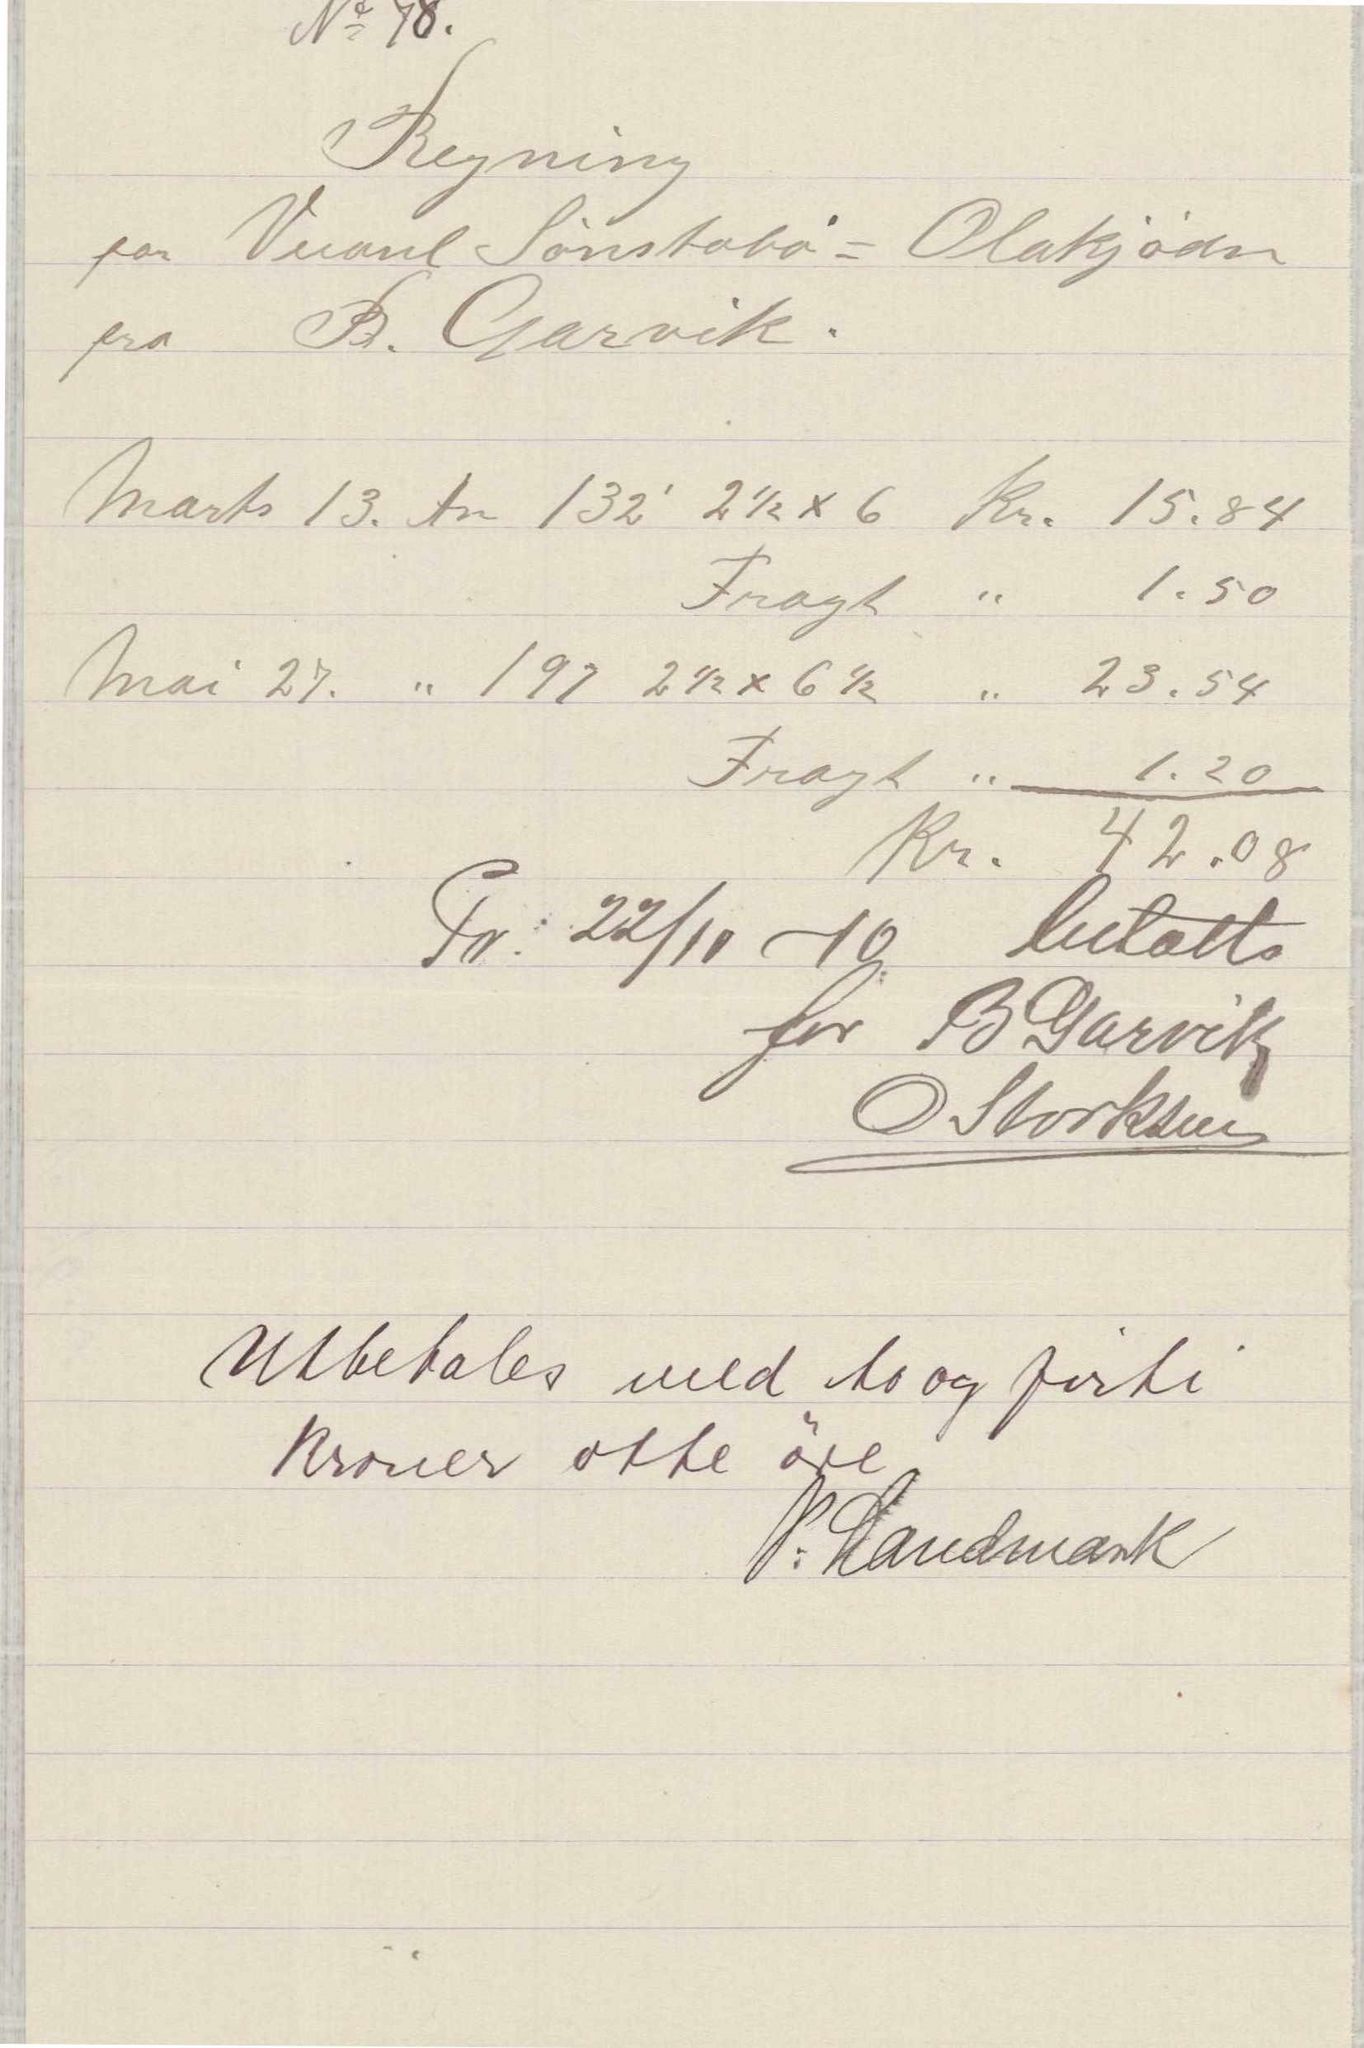 No 78.
Regning
for Veianl Sönstabö = Olakjödn
fra B. Garvik.
Marts 13. An 132' 2½ x 6 Kr. 15.84
Fragt " 1.50
Mai 27. " 197 2½ x 6½ " 23.54
Fragt " 1.20
Kr. 42.08
22/10 -10 betalt
for B Garvik
O Storksen
Utbetales med to og firti
kroner otte öre
P. Landmark